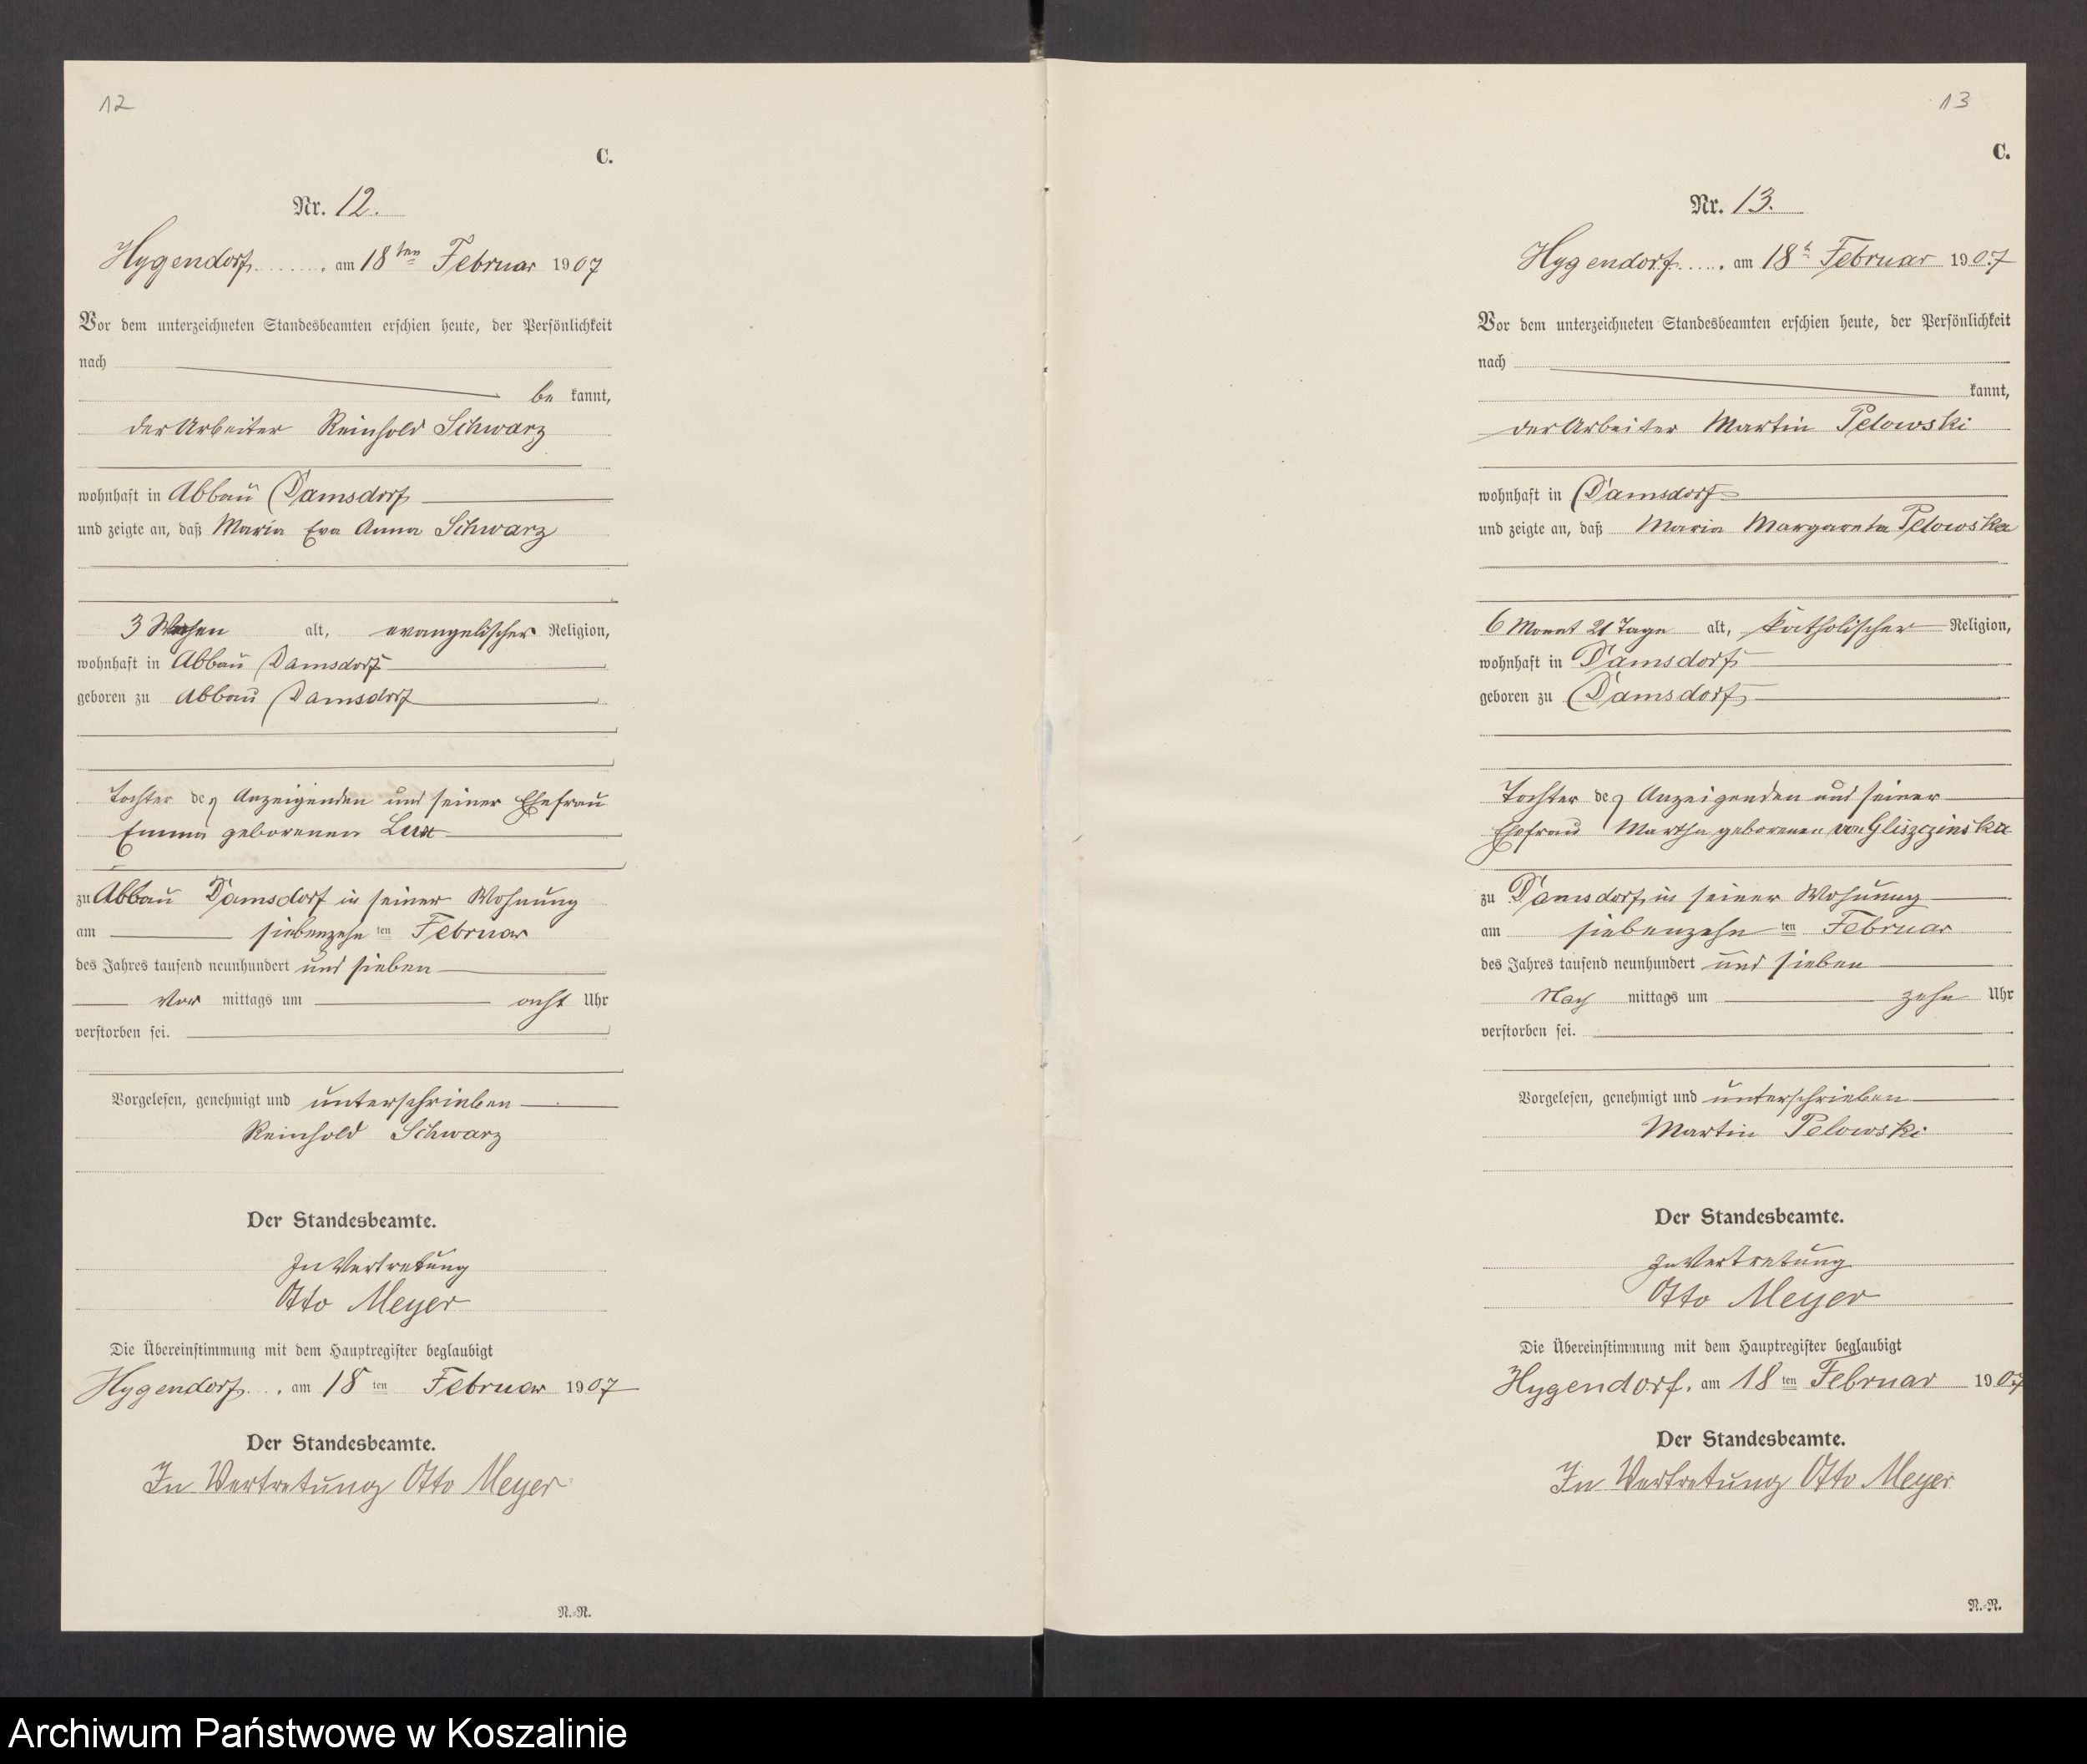 12
C.
Nr. 12.
Hygendorf, am 18ten Februar 1907
Vor dem unterzeichneten Standesbeamten erschien heute, der Persönlichkeit
nach
be kannt,
der Arbeiter Reinhold Schwarz
wohnhaft in Abbau Damsdorf
und zeigte an, daß Maria Eva Anna Schwarz
3 Wochen alt, evangelischer Religion,
wohnhaft in Abbau Damsdorf
geboren zu Abbau Damsdorf
Tochter des Anzeigenden und seiner Ehefrau
Emma geborenen Lux
zu Abbau Damsdorf in seiner Wohnung
am siebenzehn ten Februar
des Jahres tausend neunhundert und sieben
Vor mittags um acht Uhr
verstorben sei.
Vorgelesen, genehmigt und unterschrieben
Reinhold Schwarz
Der Standesbeamte.
In Vertretung
Otto Meyer
Die Übereinstimmung mit dem Hauptregister beglaubigt
Hygendorf, am 18 ten Februar 1907
Der Standesbeamte.
In Vertretung Otto Meyer
N.-N.
13
C.
Nr. 13.
Hygendorf, am 18t Februar 1907
Vor dem unterzeichneten Standesbeamten erschien heute, der Persönlichkeit
nach
kannt,
der Arbeiter Martin Pelowski
wohnhaft in Damsdorf
und zeigte an, daß Maria Margareta Pelowska
6 Monat 21 Tage alt, katholischer Religion,
wohnhaft in Damsdorf
geboren zu Damsdorf
Tochter des Anzeigenden und seiner
Ehefrau Martha geborenen von Gliszczinska
zu Damsdorf, in seiner Wohnung
am siebenzehn ten Februar
des Jahres tausend neunhundert und sieben
Nach mittags um zehn Uhr
verstorben sei.
Vorgelesen, genehmigt und unterschrieben
Martin Pelowski
Der Standesbeamte.
In Vertretung
Otto Meyer
Die Übereinstimmung mit dem Hauptregister beglaubigt
Hygendorf, am 18 ten Februar 1907
Der Standesbeamte.
In Vertretung Otto Meyer
N.-N.
Archiwum Państwowe w Koszalinie